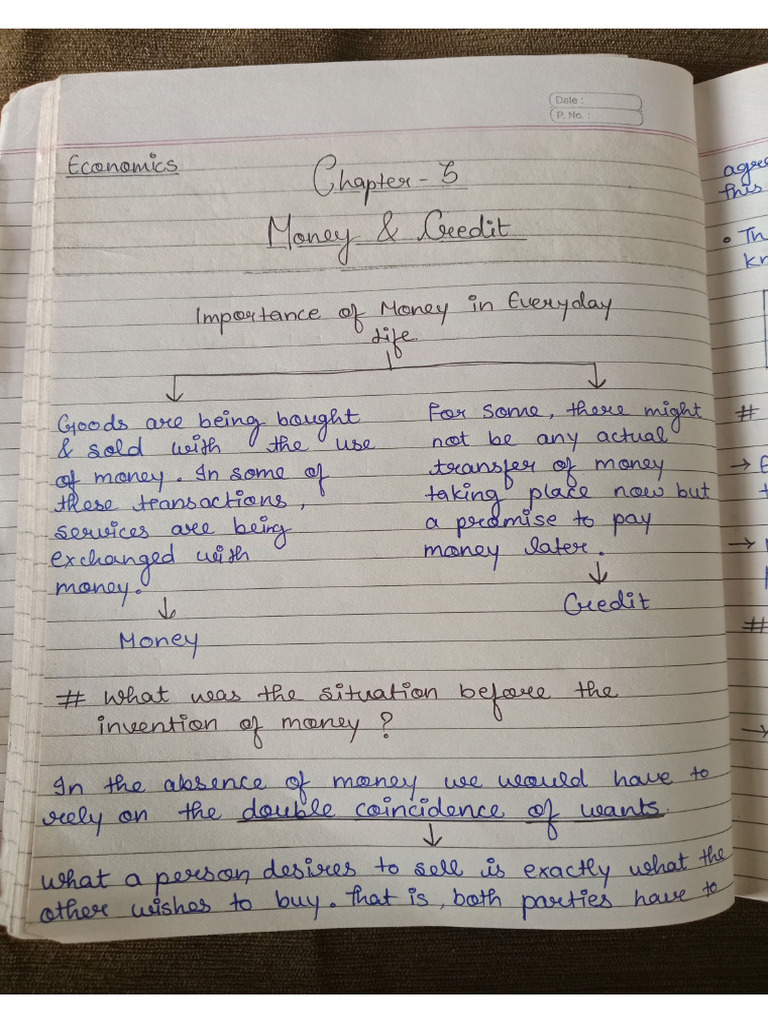 Date :
P. No. :
Economics
Chapter - 5
Money & Credit
Importance of Money in Everyday
Life
Goods are being bought
& sold with the use
of money. In some of
these transactions,
services are being
exchanged with
money.
Money
For some, there might
not be any actual
transfer of money
taking place now but
a promise to pay
money later.
Credit
# What was the situation before the
invention of money?
In the absence of money we would have to
rely on the double coincidence of wants.
What a person desires to sell is exactly what the
other wishes to buy. That is, both parties have to
agre
this
• Th
kn
#
#